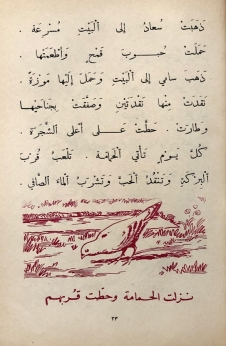 ذَهَبَتْ سُعَادُ إِلَى ٱلْبَيْتِ مُسْرِعَةً .
حَمَلَتْ حُبُوبَ قَمْحٍ وَأَطْعَمَتْهَا .
ذَهَبَ سَامِي إِلَى ٱلْبَيْتِ وَحَمَلَ إِلَيْهَا مَوْزَةً
نَقَدَتْ مِنْهَا نَقْدَتَيْنِ وَصَفَّقَتْ بِجَنَاحَيْهَا
وَطَارَتْ . حَطَّتْ عَلَى أَعْلَى ٱلشَّجَرَةِ .
كُلَّ يَوْمٍ تَأْتِي ٱلْحَمَامَةُ . تَلْعَبُ قُرْبَ
ٱلْبِرْكَةِ وَتَنْقُدُ ٱلْحَبَّ وَتَشْرَبُ ٱلْمَاءَ ٱلصَّافِي .
نزلت الحمامة وحطت قربهم
٢٣